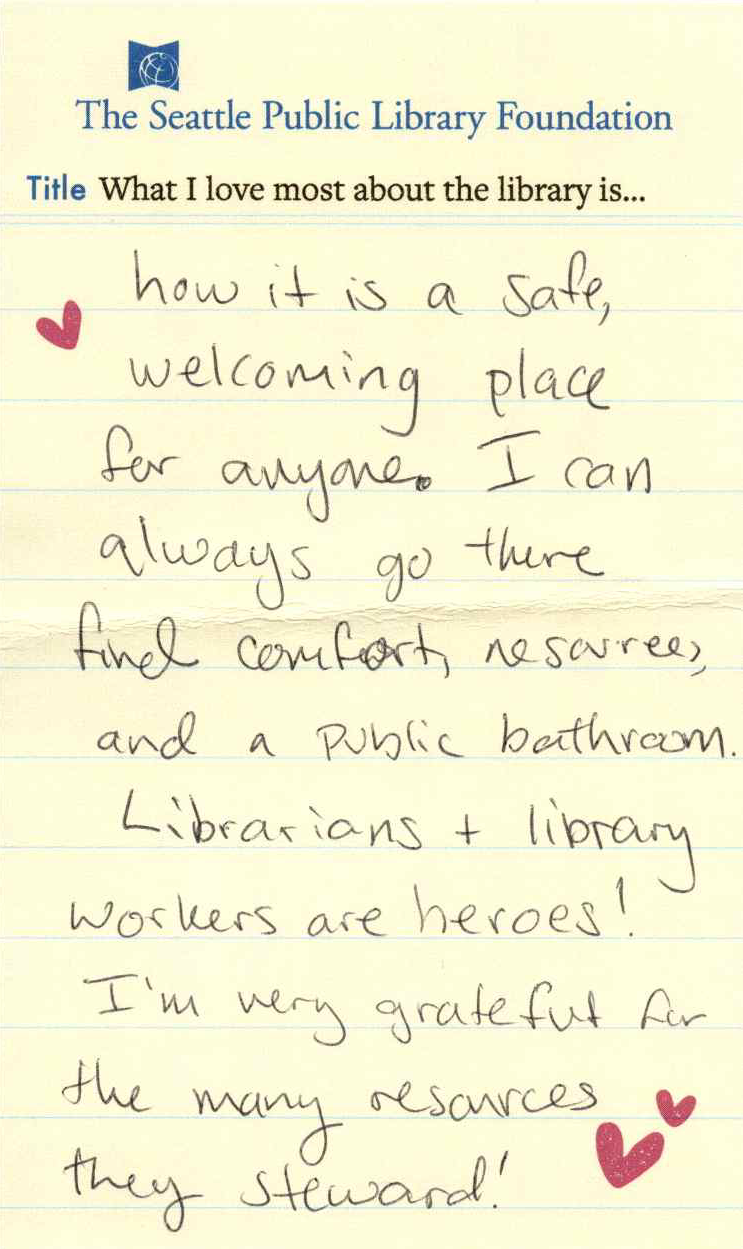 The Seattle Public Library Foundation
Title What I love most about the library is...
how it is a safe,
welcoming place
for anyone. I can
always go there
find comfort, resources,
and a public bathroom.
Librarians + library
workers are heroes!
I'm very grateful for
the many resources
they steward!